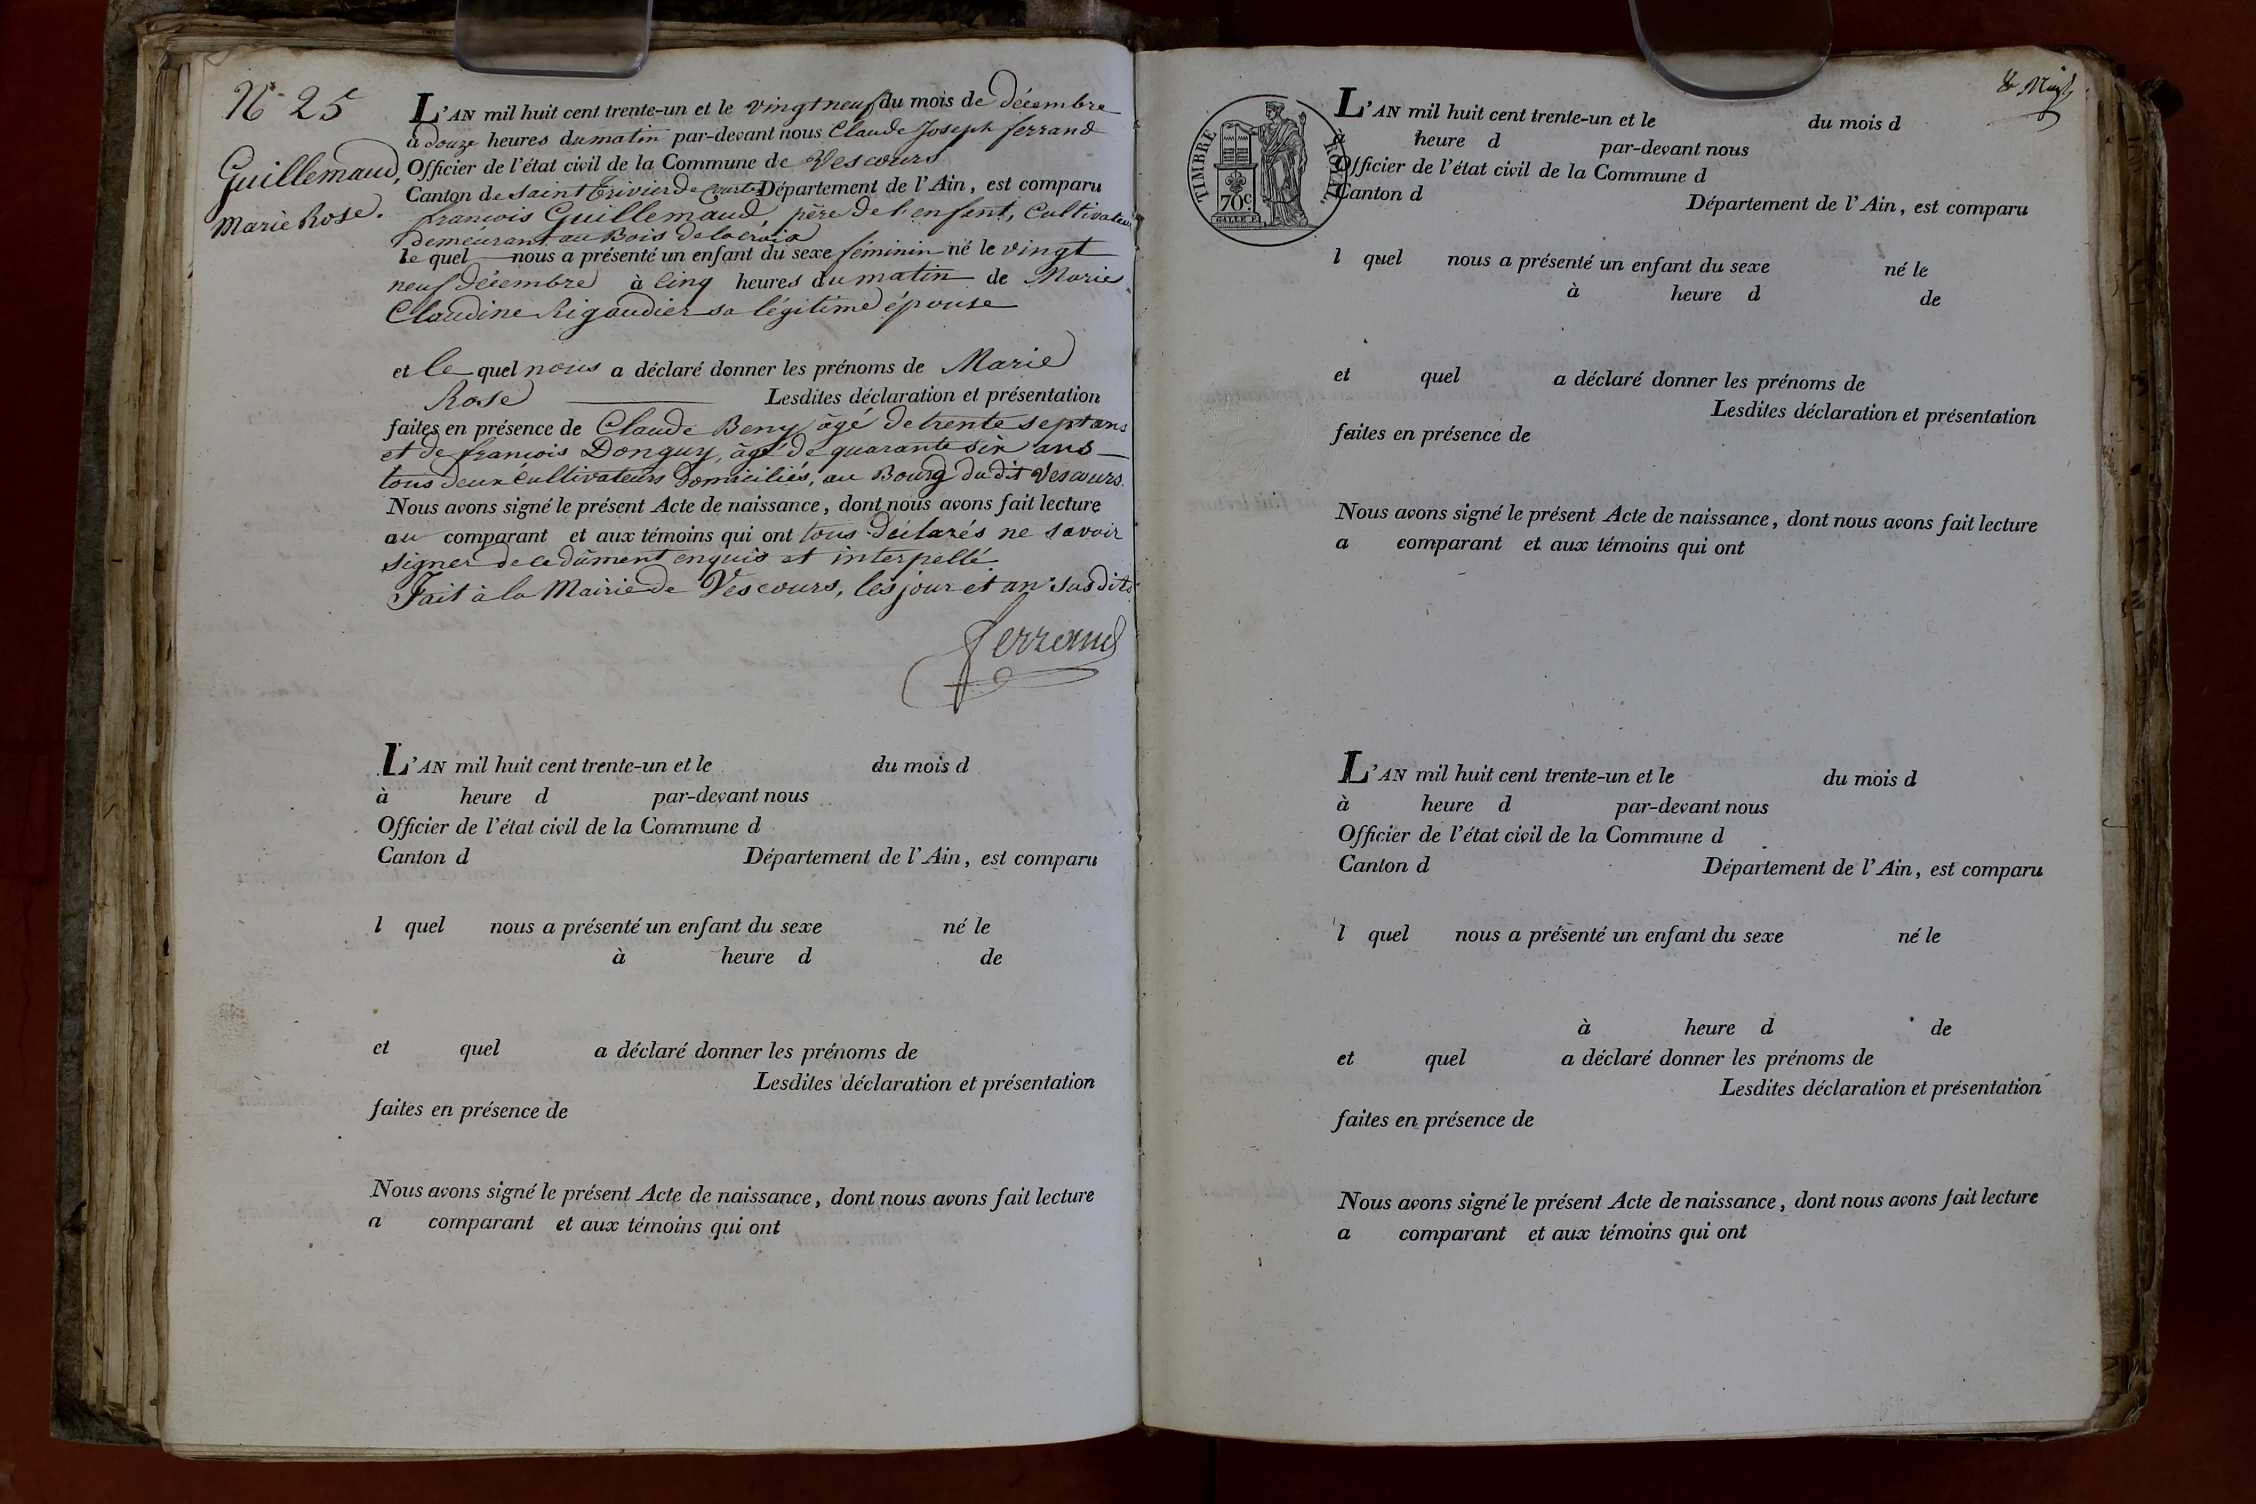 N° 25
Guillemaud,
Marie Rose.
L'AN mil huit cent trente-un et le vingt neuf du mois de décembre
à douze heures du matin par-devant nous Claude Joseph ferrand
Officier de l'état civil de la Commune de Vescours
Canton de saint trivier de Courtes Département de l'Ain, est comparu
francois Guillemaud père de l'enfant, Cultivateur
demeurant au Bois de la croix
le quel nous a présenté un enfant du sexe féminin né le vingt
neuf décembre à cinq heures du matin de Marie
Claudine Rigaudier sa légitime épouse
et le quel nous a déclaré donner les prénoms de Marie
Rose Lesdites déclaration et présentation
faites en présence de Claude Beny âgé de trente sept ans
et de francois Donguy, âgé de quarante six ans
tous deux Cultivateurs domiciliés, au Bourg du dit Vescours.
Nous avons signé le présent Acte de naissance, dont nous avons fait lecture
au comparant et aux témoins qui ont tous déclarés ne savoir
signer de ce dûment enquis et interpellé
Fait à la Mairie de Vescours, les jour et an susdits
ferrand
L'AN mil huit cent trente-un et le du mois d
à heure d par-devant nous
Officier de l'état civil de la Commune d
Canton d Département de l'Ain, est comparu
l quel nous a présenté un enfant du sexe né le
à heure d de
et quel a déclaré donner les prénoms de
Lesdites déclaration et présentation
faites en présence de
Nous avons signé le présent Acte de naissance, dont nous avons fait lecture
a comparant et aux témoins qui ont
TIMBRE ROYAL.
70c.
L'AN mil huit cent trente-un et le du mois d
à heure d par-devant nous
Officier de l'état civil de la Commune d
Canton d Département de l'Ain, est comparu
l quel nous a présenté un enfant du sexe né le
à heure d de
et quel a déclaré donner les prénoms de
Lesdites déclaration et présentation
faites en présence de
Nous avons signé le présent Acte de naissance, dont nous avons fait lecture
a comparant et aux témoins qui ont
L'AN mil huit cent trente-un et le du mois d
à heure d par-devant nous
Officier de l'état civil de la Commune d
Canton d Département de l'Ain, est comparu
l quel nous a présenté un enfant du sexe né le
à heure d de
et quel a déclaré donner les prénoms de
Lesdites déclaration et présentation
faites en présence de
Nous avons signé le présent Acte de naissance, dont nous avons fait lecture
a comparant et aux témoins qui ont